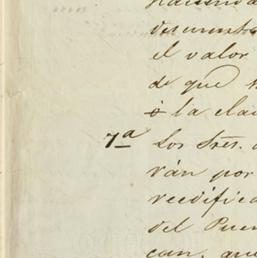 el valor
de que
ó la cla
7ª Los Sres.
ván por
reedifica
del Puen
can, que